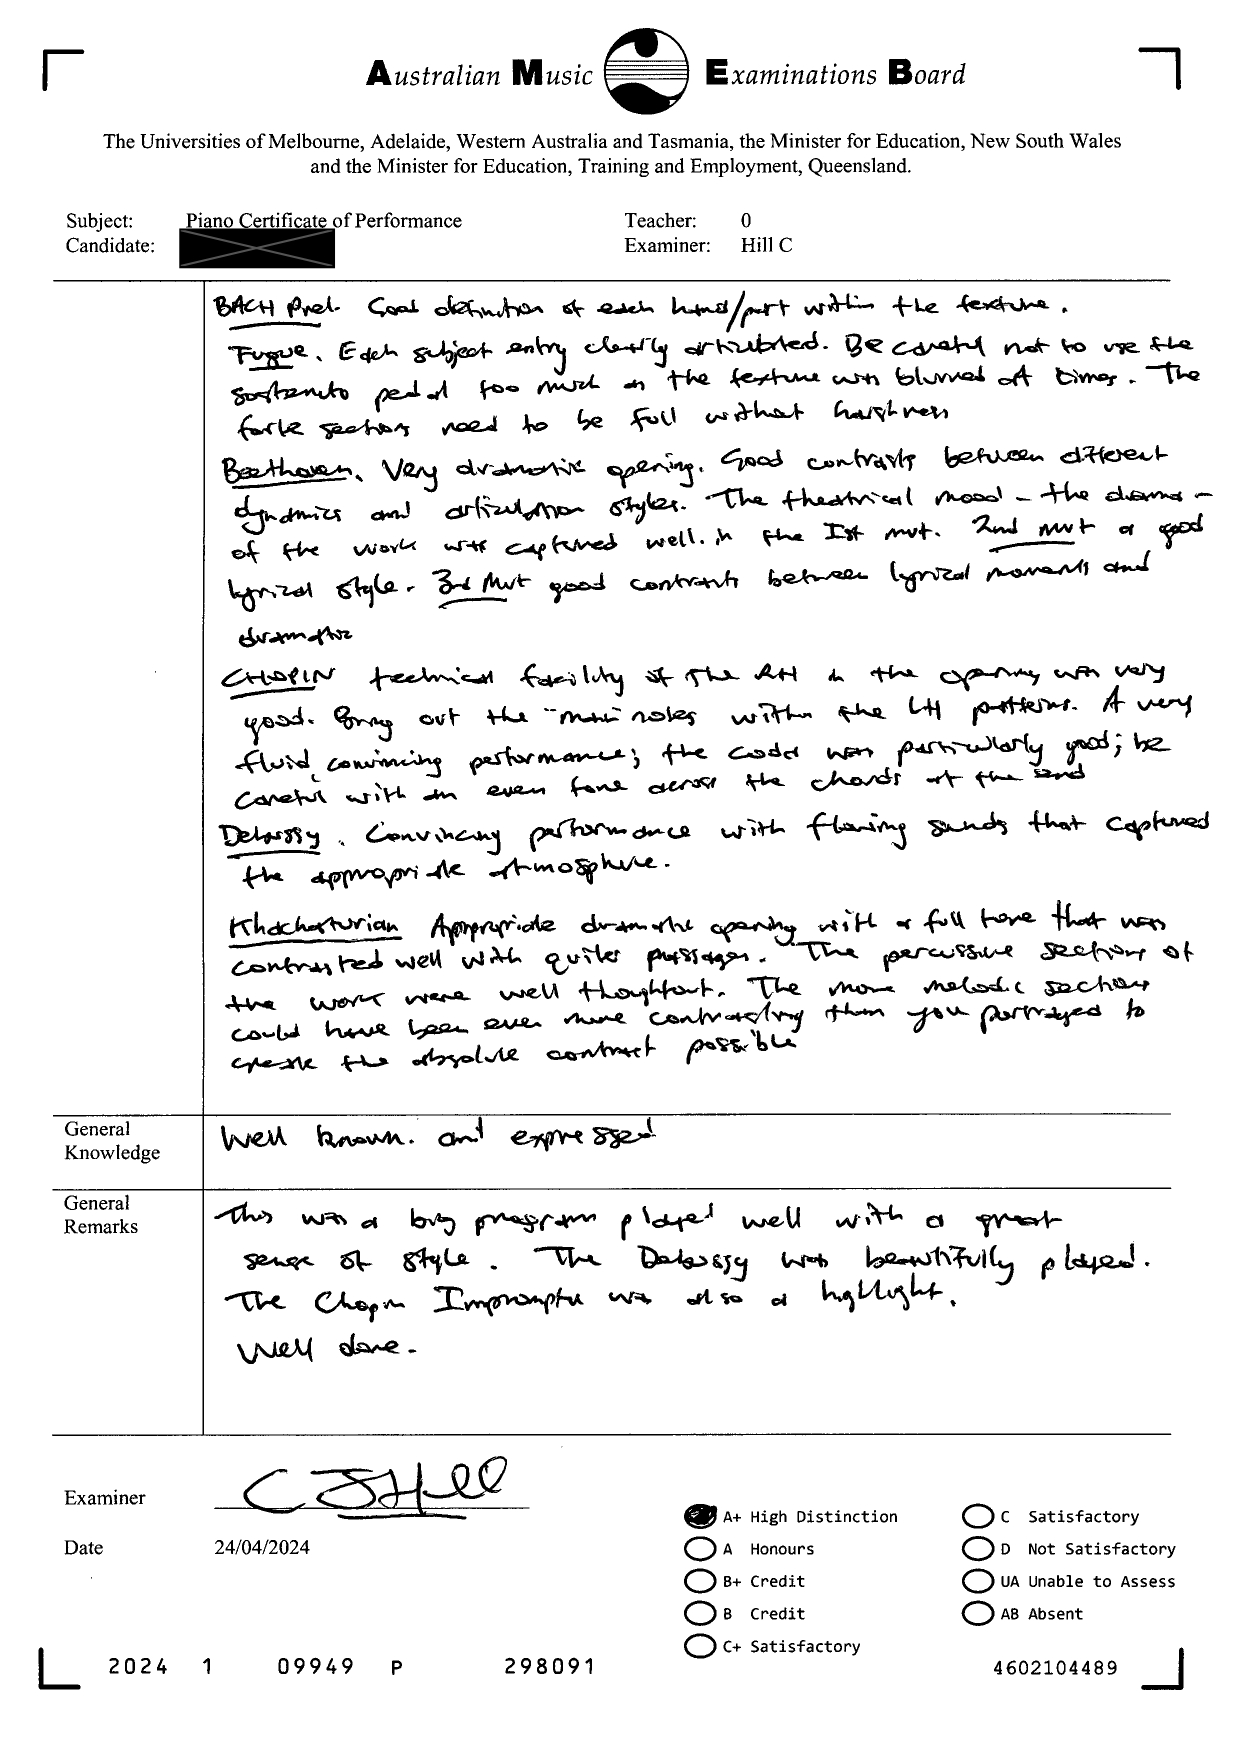 Australian Music Examinations Board
The Universities of Melbourne, Adelaide, Western Australia and Tasmania, the Minister for Education, New South Wales
and the Minister for Education, Training and Employment, Queensland.
Subject: Piano Certificate of Performance Teacher: 0
Candidate: Examiner: Hill C
BACH Prel. Good definition of each hand/part within the texture.
Fugue. Each subject entry clearly articulated. Be careful not to use the
sostenuto pedal too much as the texture was blurred at times. The
forte sections need to be full without harshness
Beethoven. Very dramatic opening. Good contrasts between different
dynamics and articulation styles. The theatrical mood - the drama -
of the work was captured well in the 1st mvt. 2nd mvt a good
lyrical style. 3rd Mvt good contrasts between lyrical moments and
dramatic
CHOPIN technical facility of the RH in the opening was very
good. Bring out the "main" notes within the LH patterns. A very
fluid, convincing performance; the coda was particularly good; be
careful with an even tone across the chords at the end
Debussy. Convincing performance with flowing sounds that captured
the appropriate atmosphere.
Khachaturian Appropriate dramatic opening with a full tone that was
contrasted well with quiter passages. The percussive sections of
the work were well thought out. The more melodic sections
could have been even more contrasting than you portrayed to
create the absolute contrast possible
General Knowledge
Well known. and expressed
General Remarks
This was a big program played well with a great
sense of style. The Debussy was beautifully played.
The Chopin Impromptu was also a highlight.
Well done.
Examiner C J Hill
Date 24/04/2024
A+ High Distinction
A Honours
B+ Credit
B Credit
C+ Satisfactory
C Satisfactory
D Not Satisfactory
UA Unable to Assess
AB Absent
2024 1 09949 P 298091 4602104489